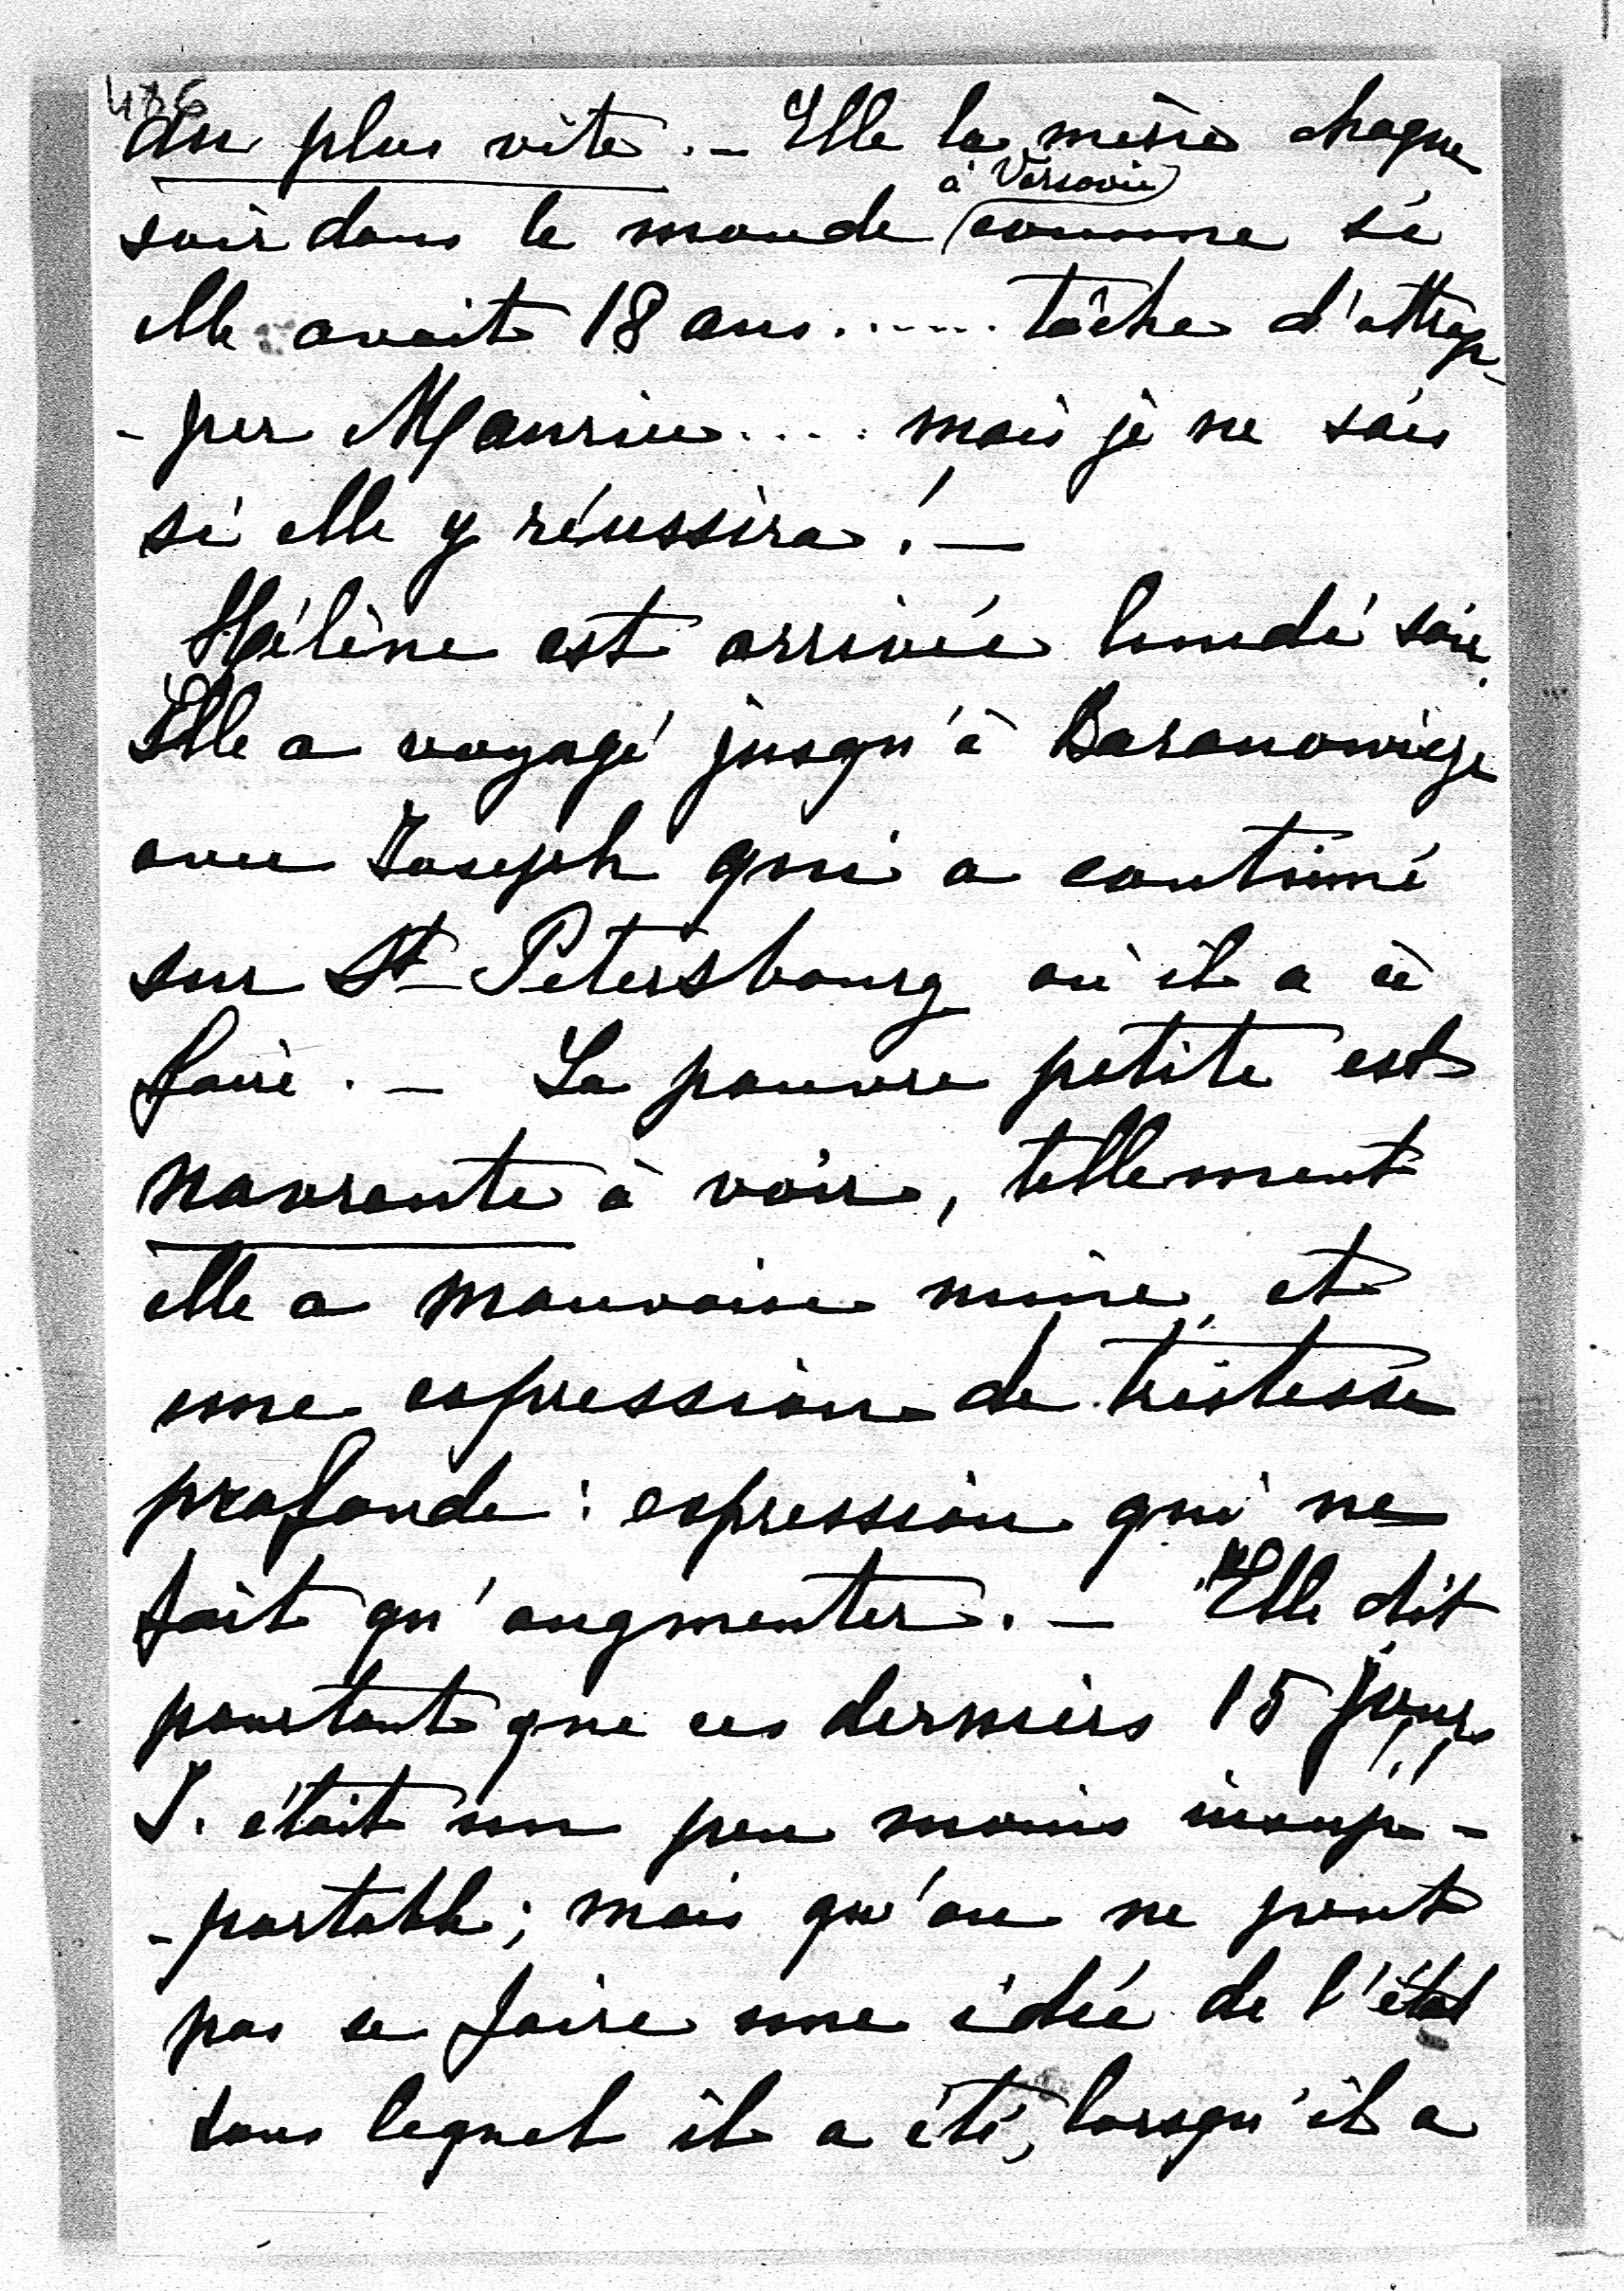 486
au plus vite. — Elle la mène chaque
à Varsovie
soir dans le monde comme si
elle avait 18 ans...... tâche d'attrap-
-per Maurice.... mais je ne sais
si elle y réussira! —
Hélène est arrivée lundi soir.
Elle a voyagé jusqu'à Baranowicze
avec Joseph qui a continué
sur St Petersbourg où il a à
faire. — La pauvre petite est
navrante à voir, tellement
elle a mauvaise mine, et
une expression de tristesse
profonde: expression qui ne
fait qu'augmenter. — Elle dit
pourtant que ces derniers 15 jours
J. était un peu moins insup-
-portable; mais qu'on ne peut
pas se faire une idée de l'état
dans lequel il a été, lorsqu'il a